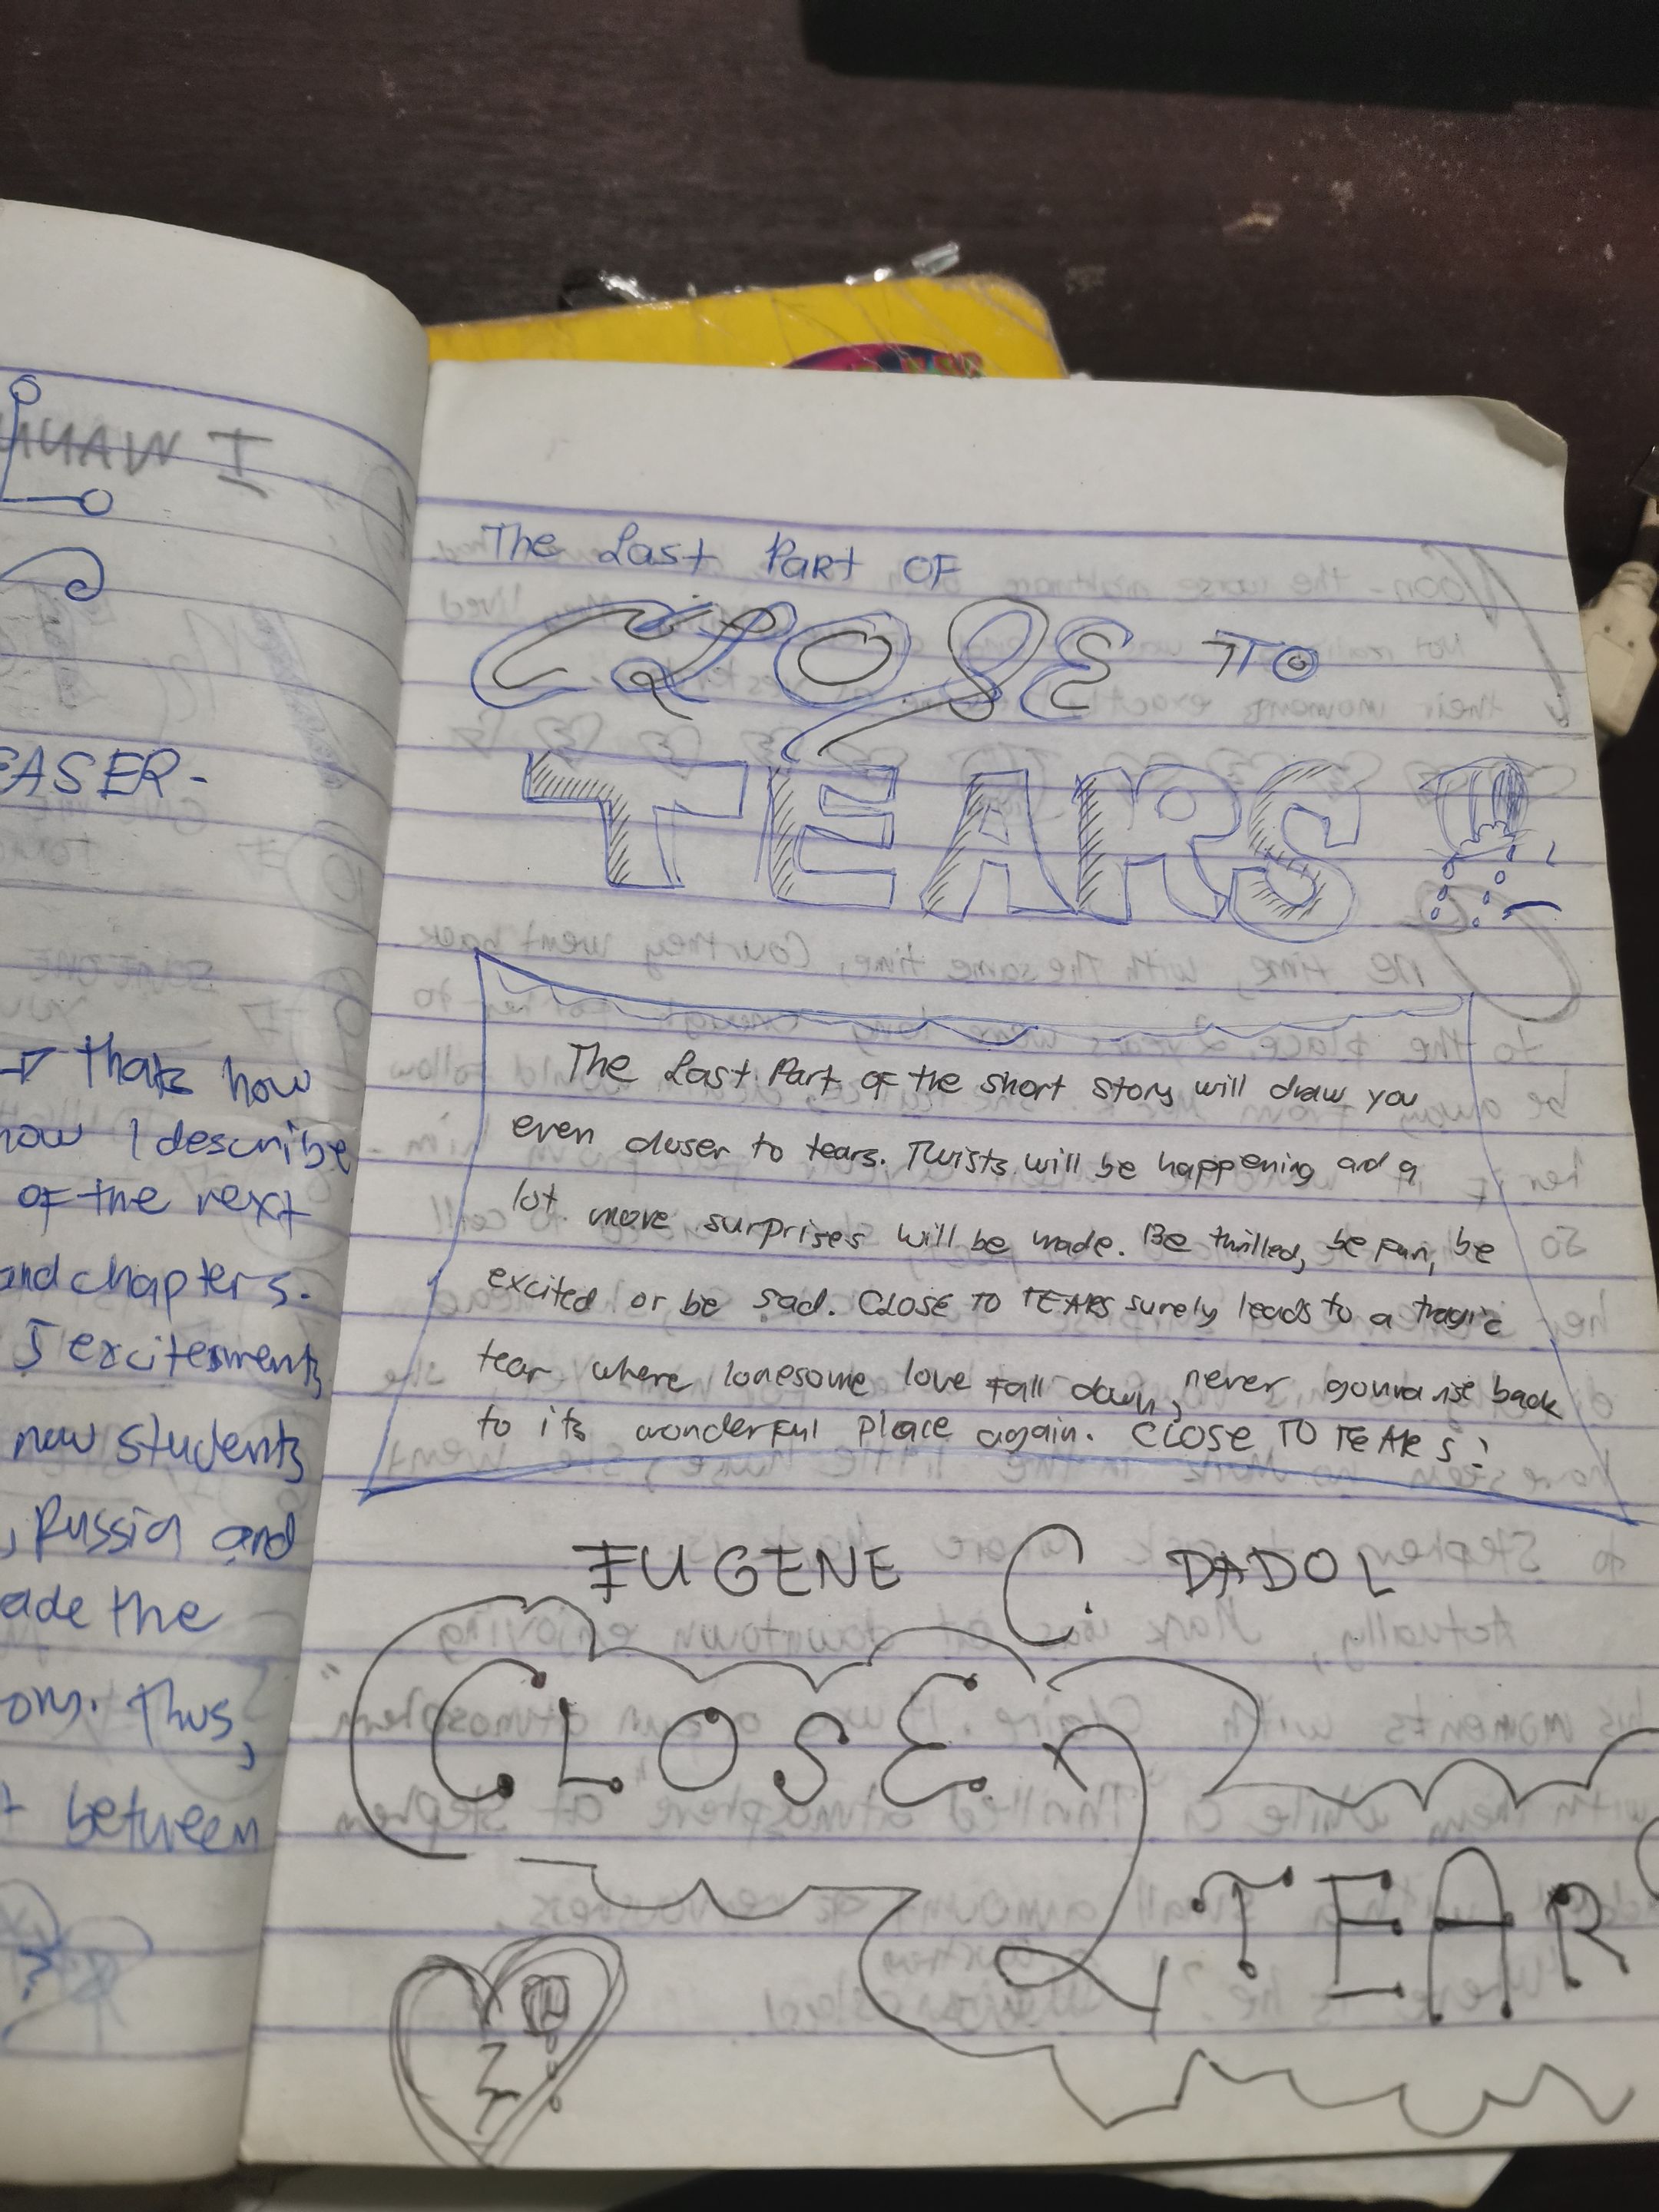 EASER-
→ thats how
how I describe
of the next
and chapters.
5 excitesments
new students
, Russia and
ade the
oms. Thus,
t between
?
The Last Part OF
CLOSE TO
TEARS
The Last Part of the short story will draw you
even closer to tears. Twists will be happening and a
lot more surprises will be made. Be thrilled, be fun, be
excited or be sad. CLOSE TO TEARS surely leads to a tragic
tear where lonesome love fall down, never gonna rise back
to its wonderful place again. CLOSE TO TEARS!
EUGENE C. DADOL
CLOSE
2 TEAR